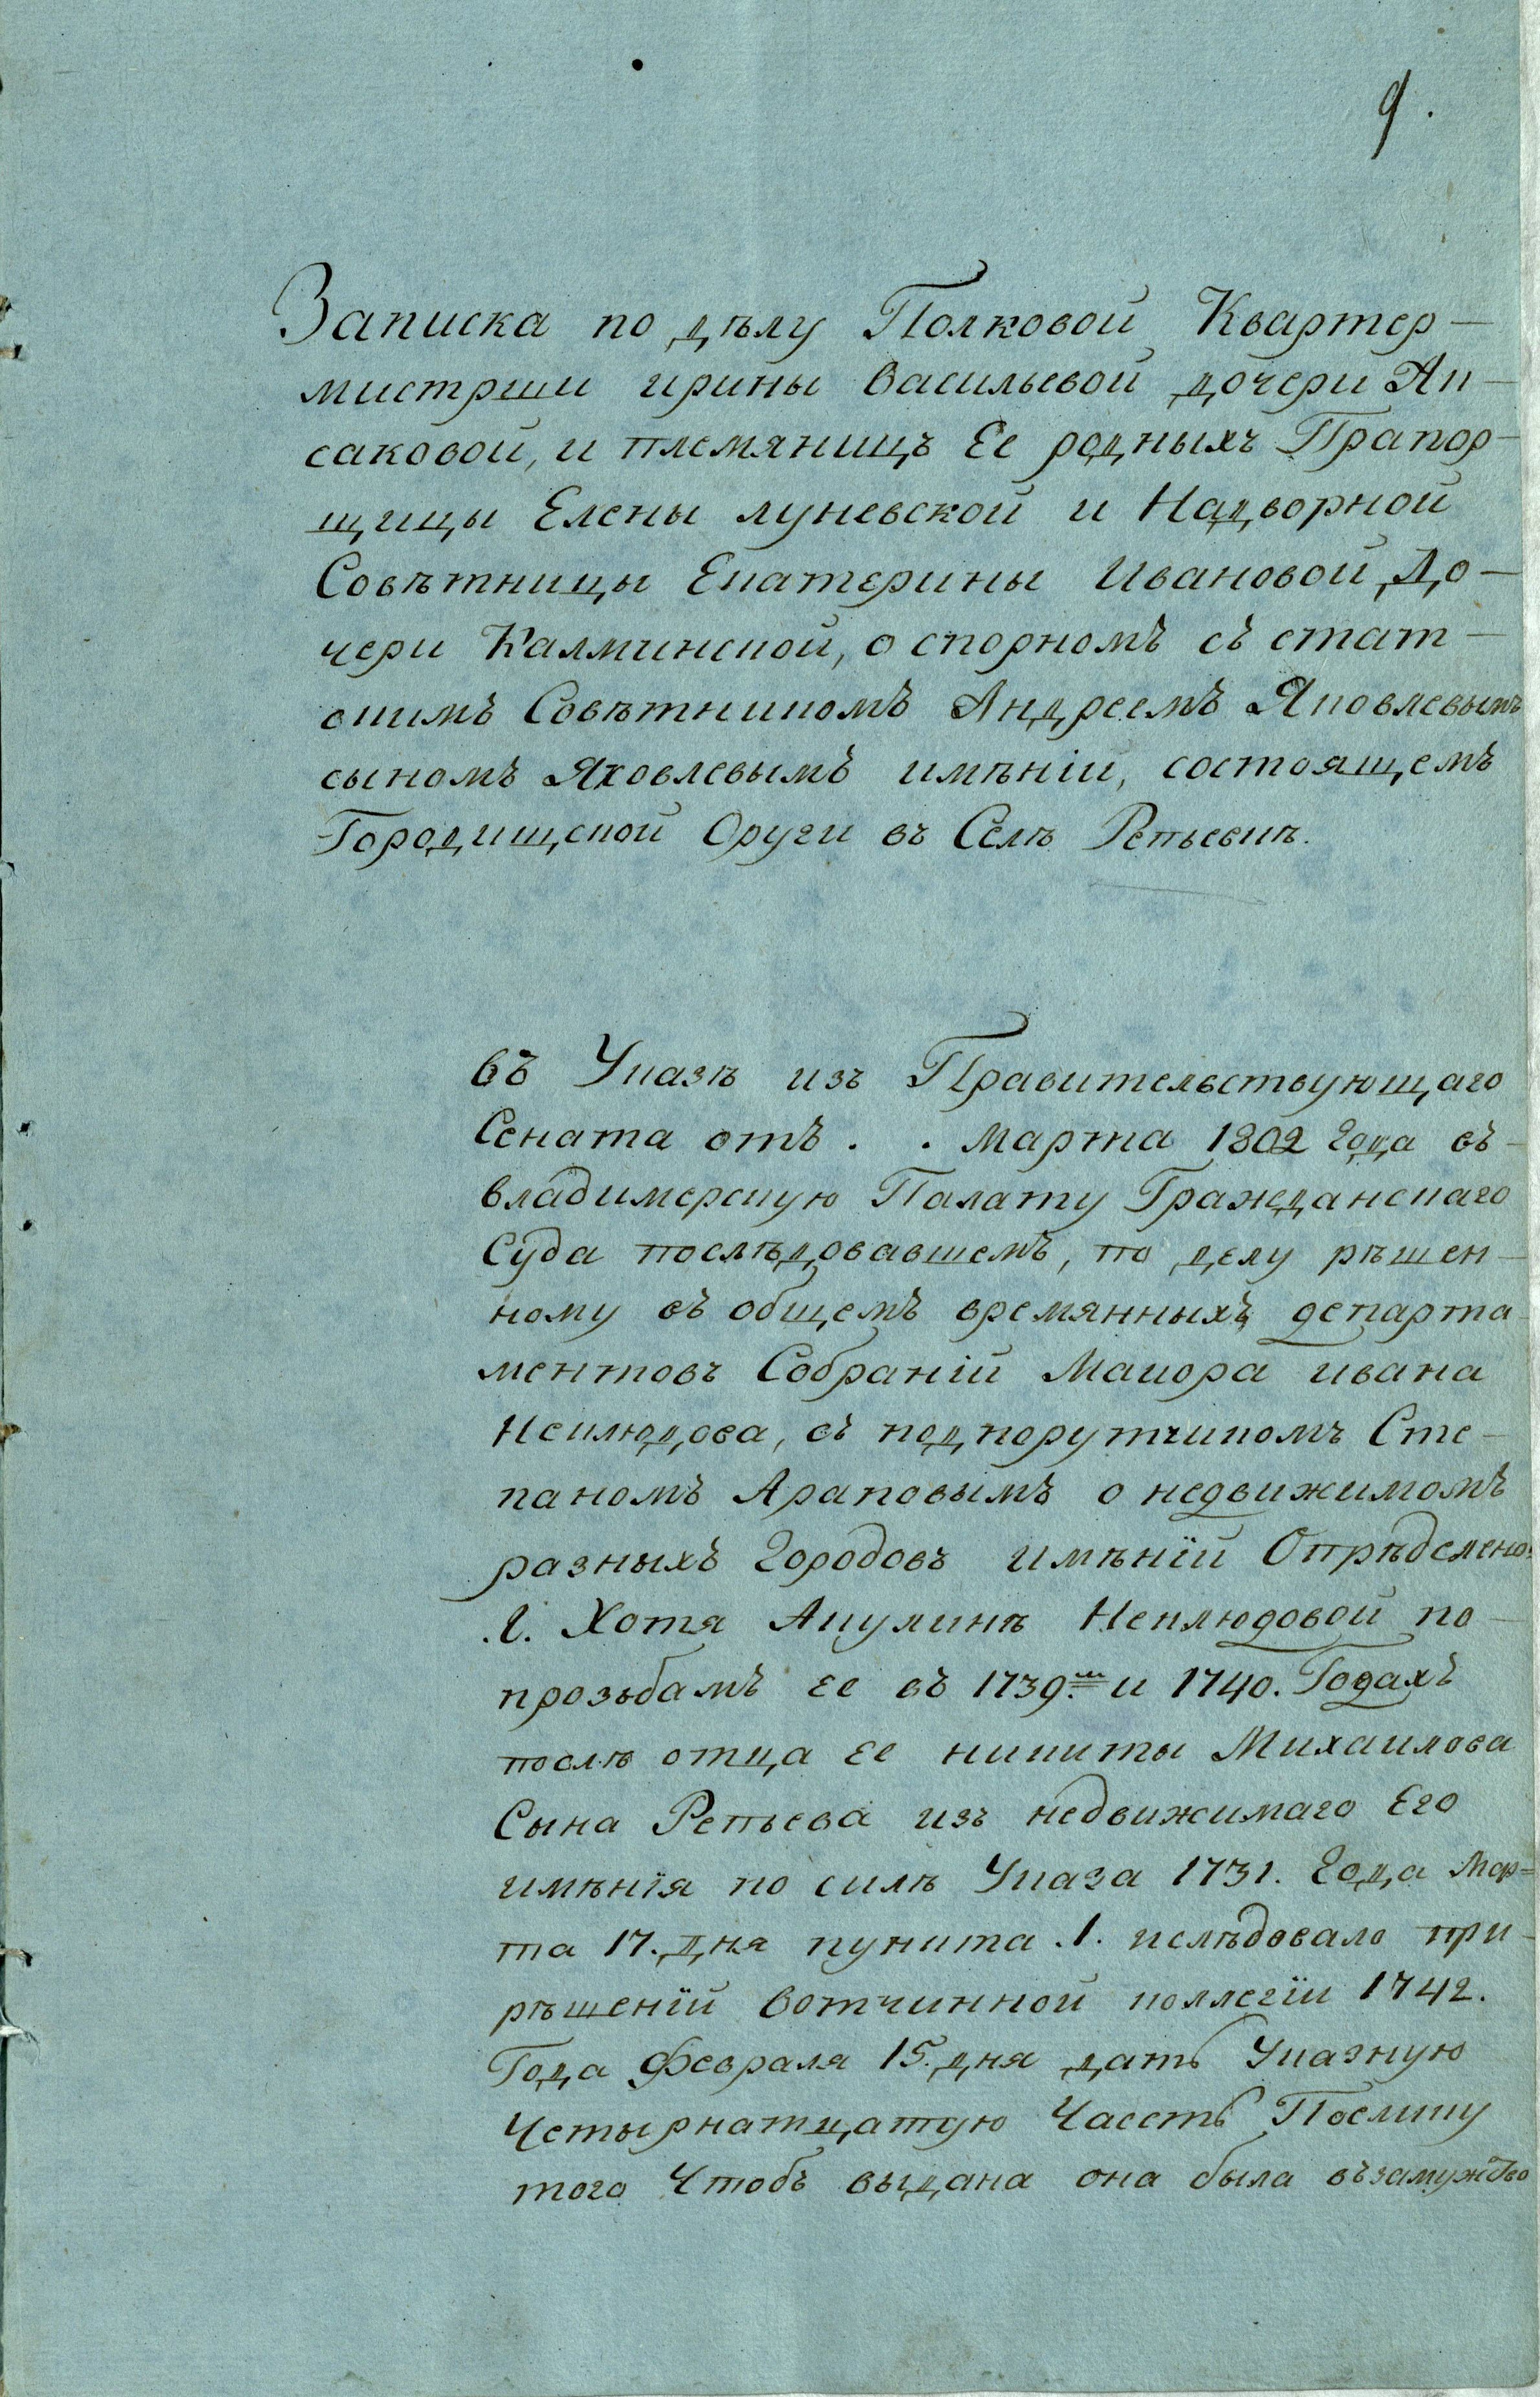 9.
Записка по дѣлу Полковой Квартер-
мистрши ирины васильевой дочери Ак-
саковой, и племяницъ Ее родныхъ Прапор-
щицы Елены луневской и Надворной
Совѣтницы Екатерины Ивановой До-
чери Калминской, о спорномъ съ стат-
скимъ Совѣтникомъ Андреемъ Яковлевымъ
сыномъ Яковлевымъ имѣніи, состоящемъ
Городищской Округи въ Селѣ Репьевкѣ.
въ Указѣ изъ Правительствующаго
Сената отъ . . марта 1802 года въ
владимерскую Палату Гражданскаго
Суда послѣдовавшемъ, по делу рѣшен-
ному въ общемъ времянныхъ департа
ментовъ Собраніи Маиора ивана
Неклюдова, съ подпорутчикомъ Сте-
паномъ Араповымъ о недвижимомъ
разныхъ городовъ имѣніи Опрѣделено:
.1. Хотя Акулинѣ Неклюдовой по-
прозьбамъ ее въ 1739.м и 1740. Годахъ
послѣ отца ее никиты Михаилова
Сына Репьева изъ недвижимаго Его
имѣнія по силѣ Указа 1731. года Мар=
та 17. дня пункта .1. ислѣдовало при-
рѣшеніи вотчинной коллегіи 1742.
Года Февраля 15. дня дать Указную
Четырнатцатую Часть Поелику
того Чтобъ выдана она была възамужство